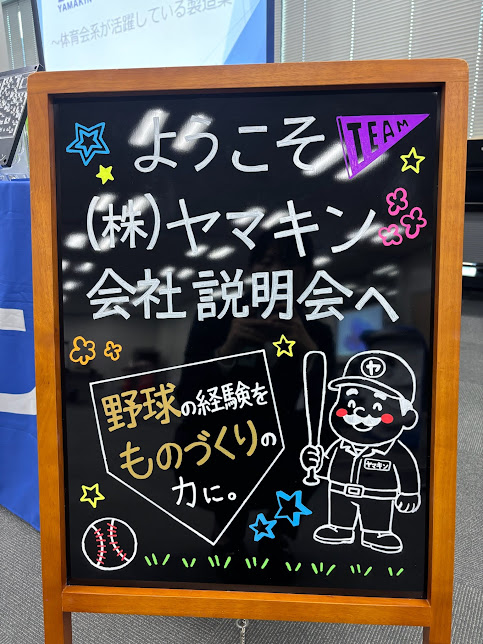 YAMAKIN
〜体育会系が活躍している製造業
ようこそ
TEAM
(株)ヤマキン
会社説明会へ
野球の経験を
ものづくりの
力に。
ヤ
ヤマキン